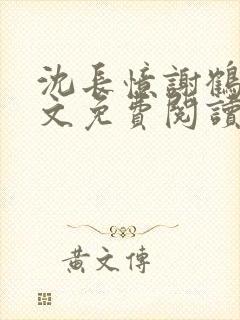 沈長憶謝鶴
文免費閱讀
黄文傳